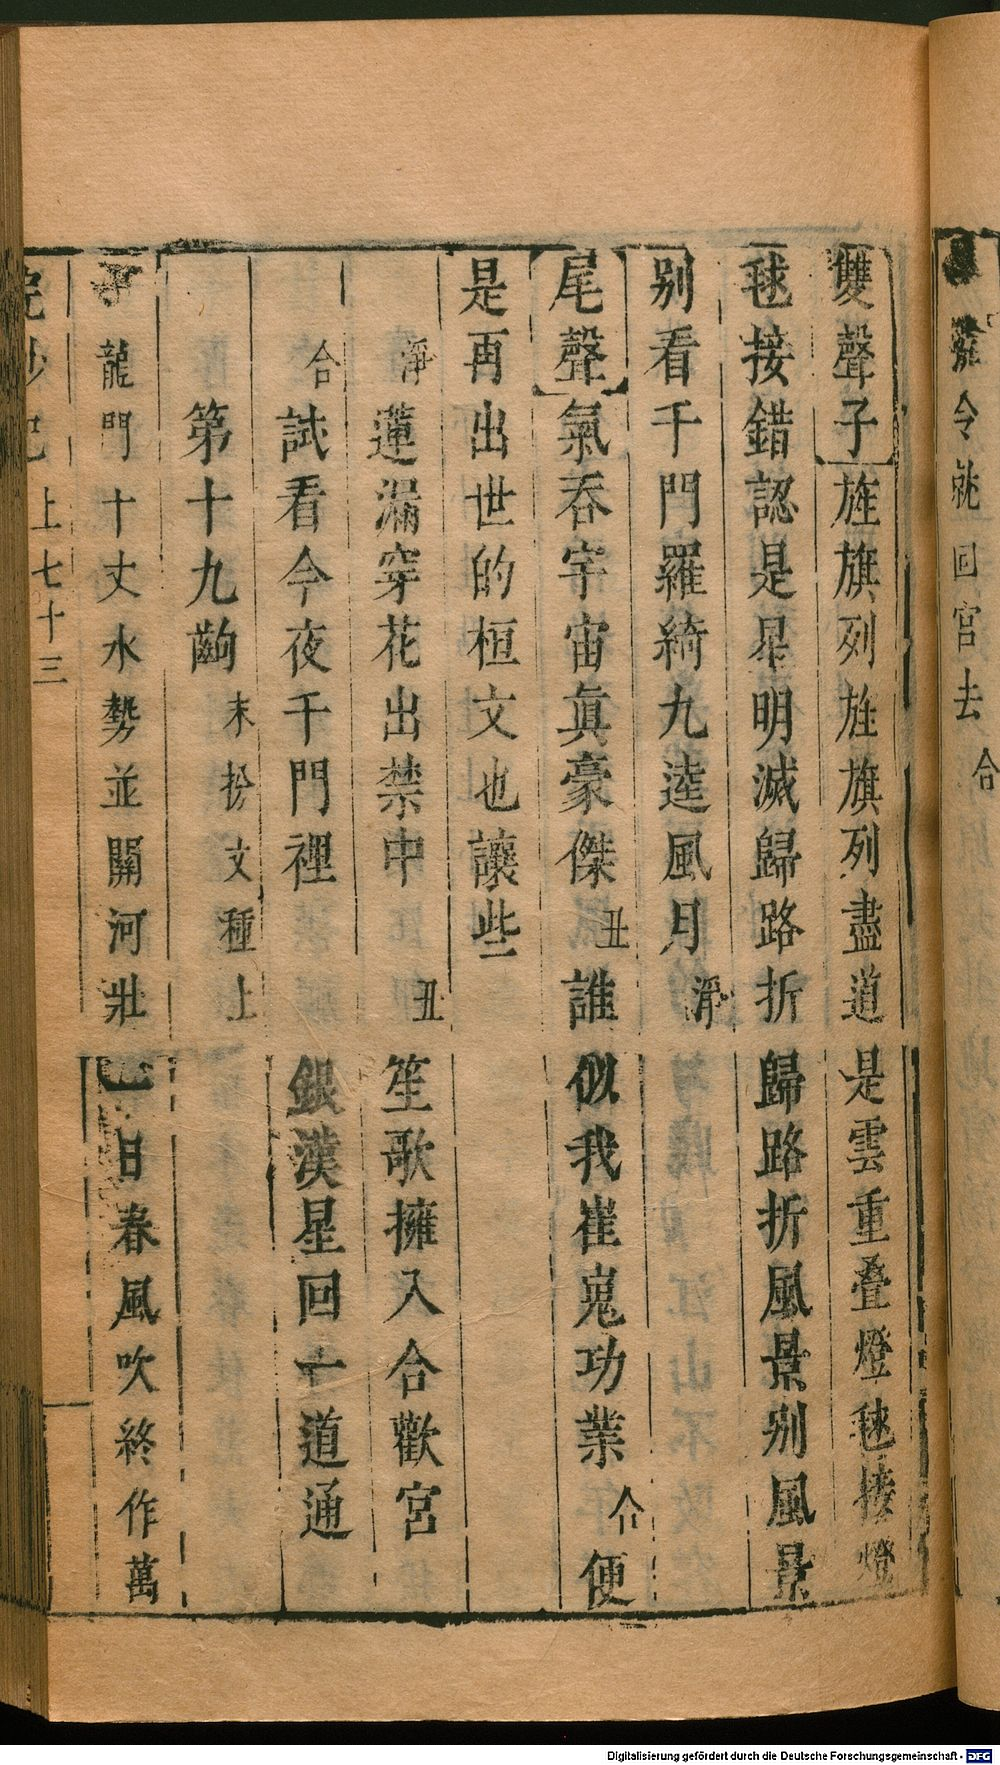 令就回宮去 合
雙聲子 旌旗列旌旗列盡道是雲重叠燈毬接燈
毬接錯認是星明滅歸路折歸路折風景别風景
别看千門羅綺九逵風月 淨
尾聲 氣吞宇宙眞豪傑 丑 誰似我崔嵬功業 合 便
是再出世的桓文也讓些
淨 蓮漏穿花出禁中 丑 笙歌擁入合歡宮
合 試看今夜千門裡 銀漢星回一道通
第十九齣 末扮文種上
龍門十丈水勢並關河壯 日春風吹終作萬
浣紗記 上 七十三
Digitalisierung gefördert durch die Deutsche Forschungsgemeinschaft - DFG